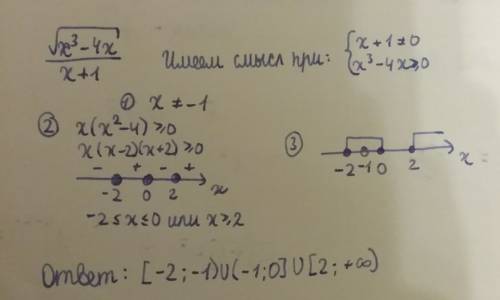 √(x³-4x) / (x+1) Имеет смысл при: { x+1≠0
x³-4x≥0
① x ≠ -1
② x(x²-4)≥0
x(x-2)(x+2)≥0
- + - +
-2 0 2 x
-2≤x≤0 или x≥2
③ -2 -1 0 2 x
Ответ: [-2;-1)∪(-1;0]∪[2;+∞)